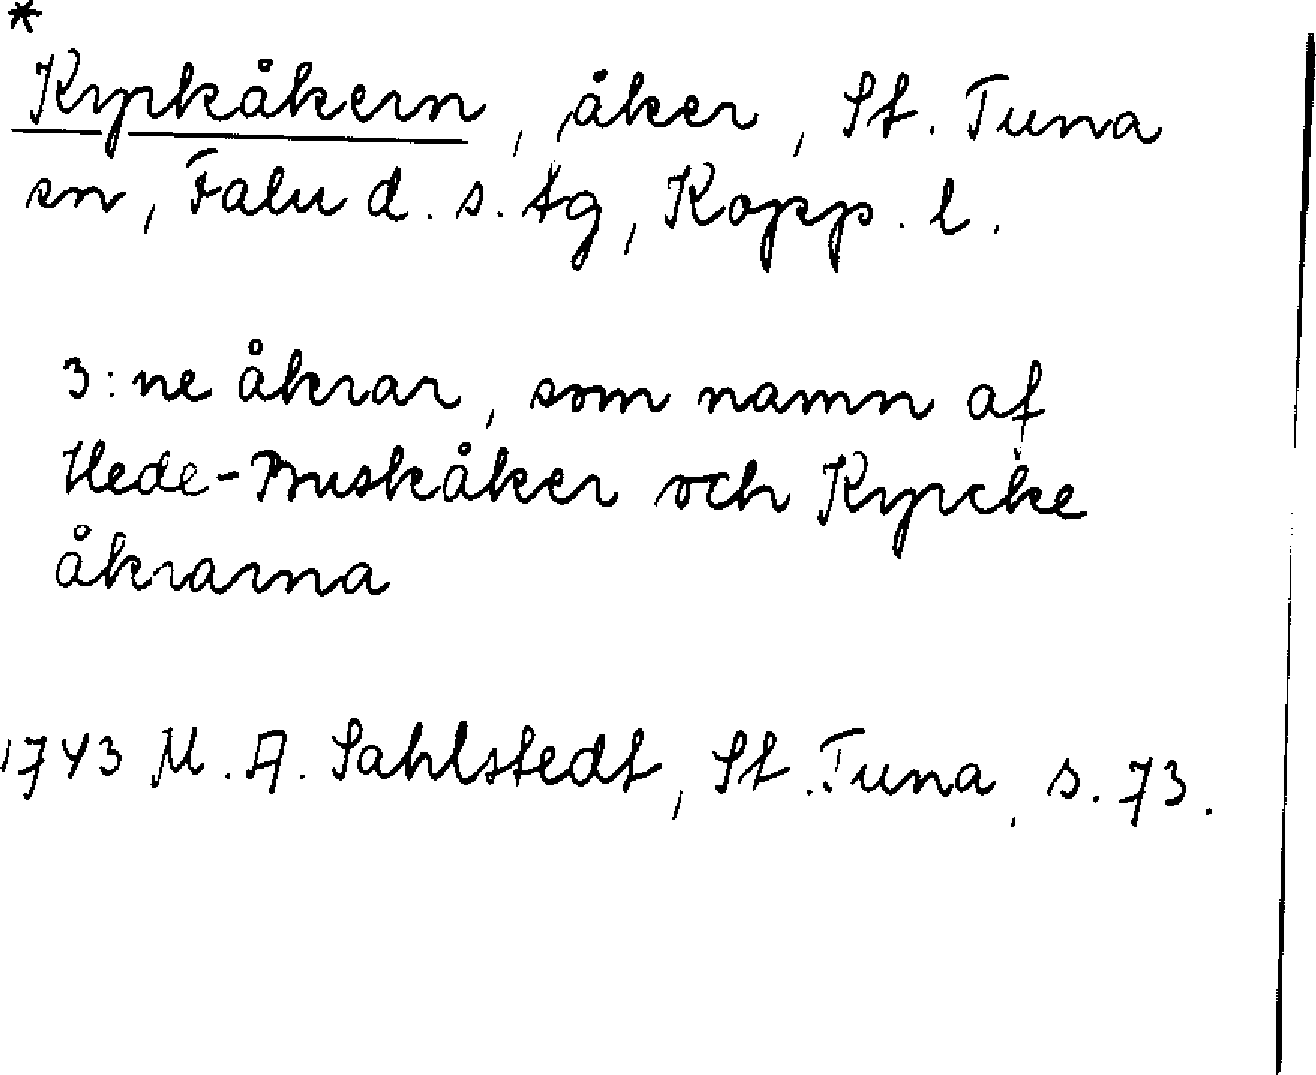 *
Kyrkåkern, åker, St. Tuna
sn, Falu d. s. tg, Kopp. l.
3:ne åkrar, som namn af
Hede-Buskåker och Kyrcke
åkrarna
1743 M. A. Sahlstedt, St. Tuna, s. 73.